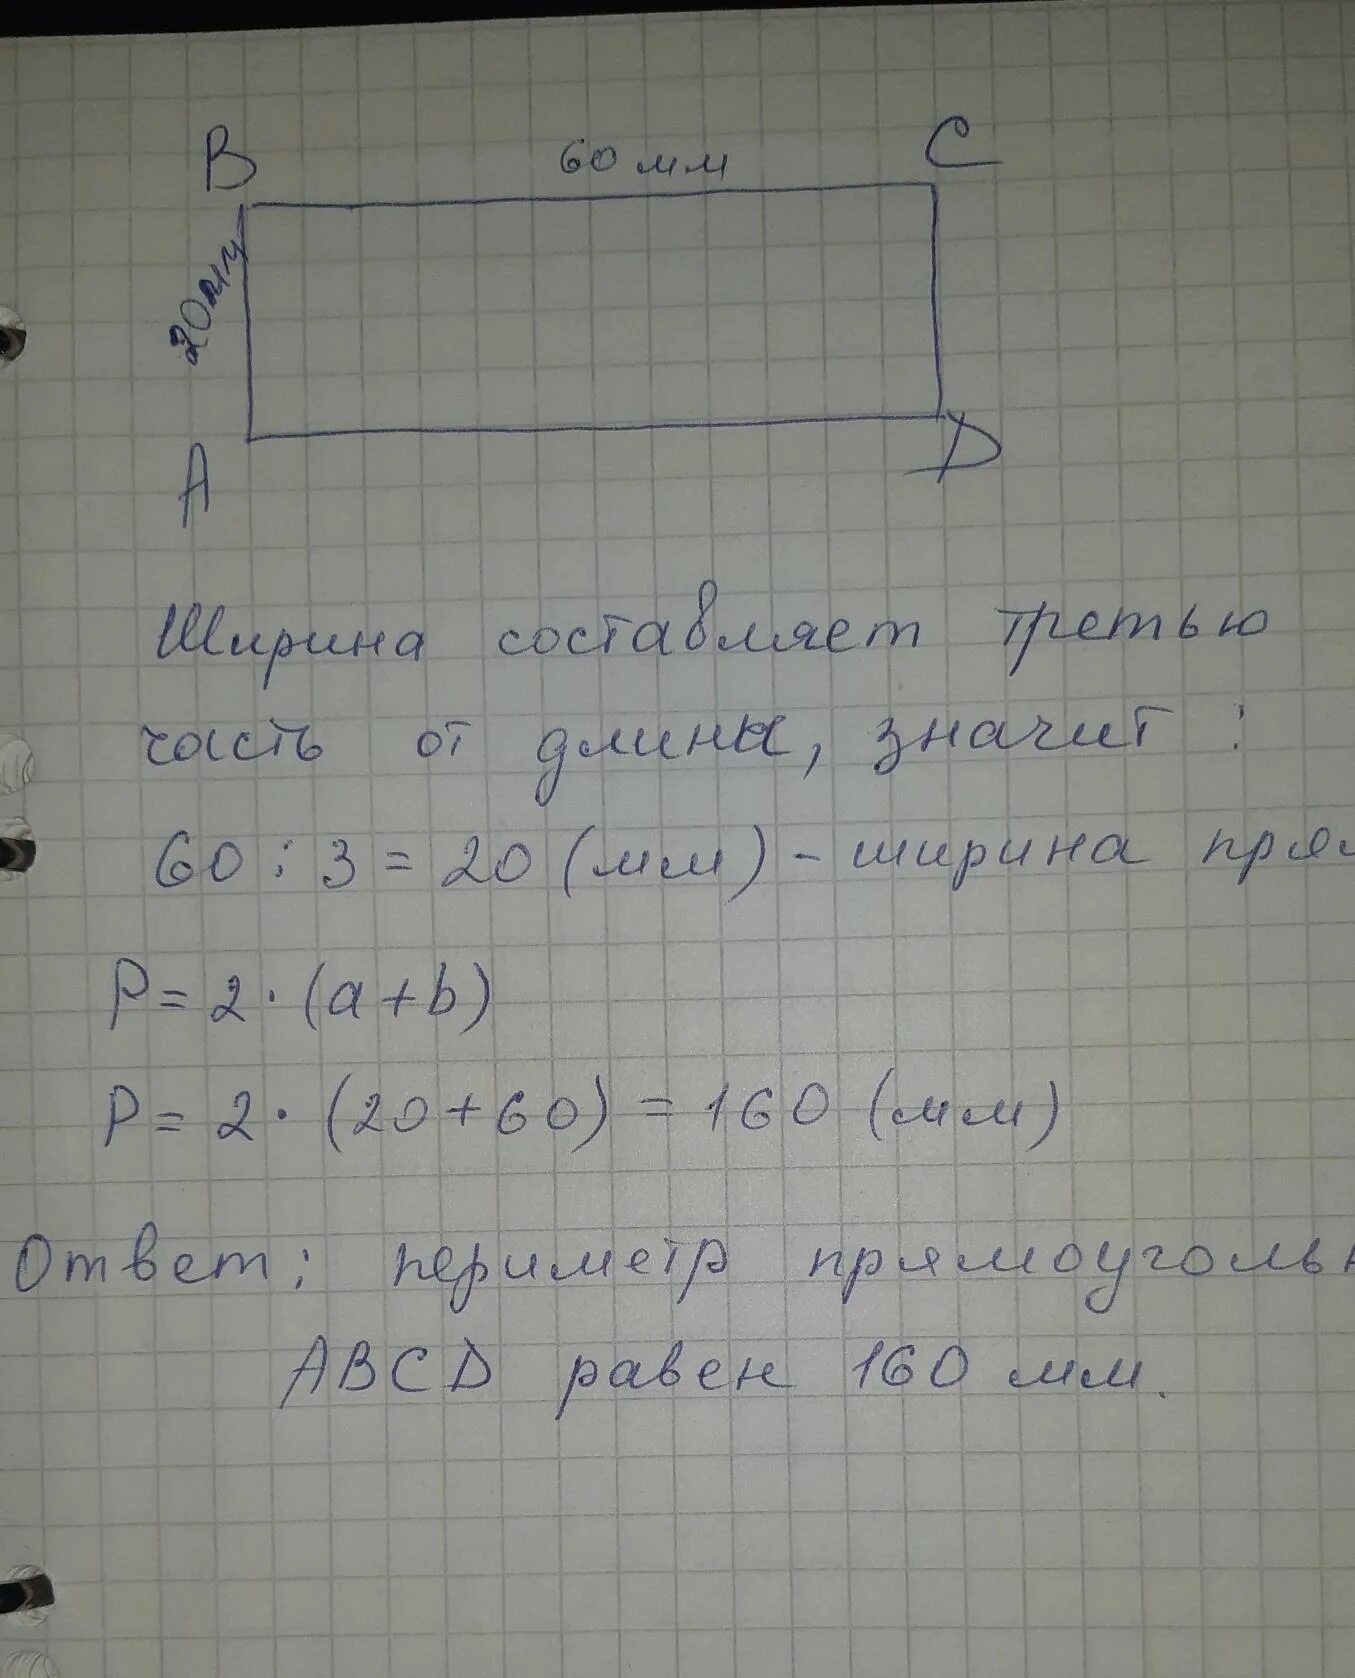 B 60 мм C
20мм
A D
Ширина составляет третью
часть от длины, значит :
60 : 3 = 20 (мм) - ширина прям
P = 2 · (a + b)
P = 2 · (20 + 60) = 160 (мм)
Ответ : периметр прямоугольн
ABCD равен 160 мм.